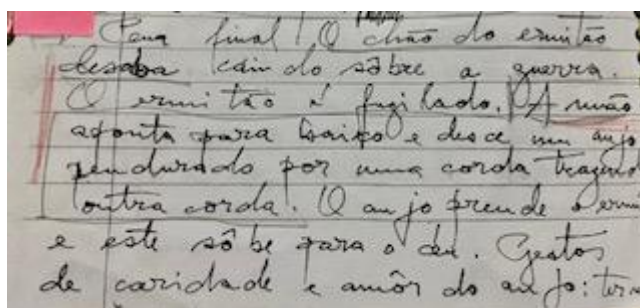 Cena final! O chão do ermitão
desaba caindo sôbre a guerra.
O ermitão é fuzilado. A mão
aponta para baixo e desce um anjo
pendurado por uma corda trazendo
outra corda. O anjo prende o ermi
e este sôbe para o céu. Gestos
de caridade e amôr do anjo: